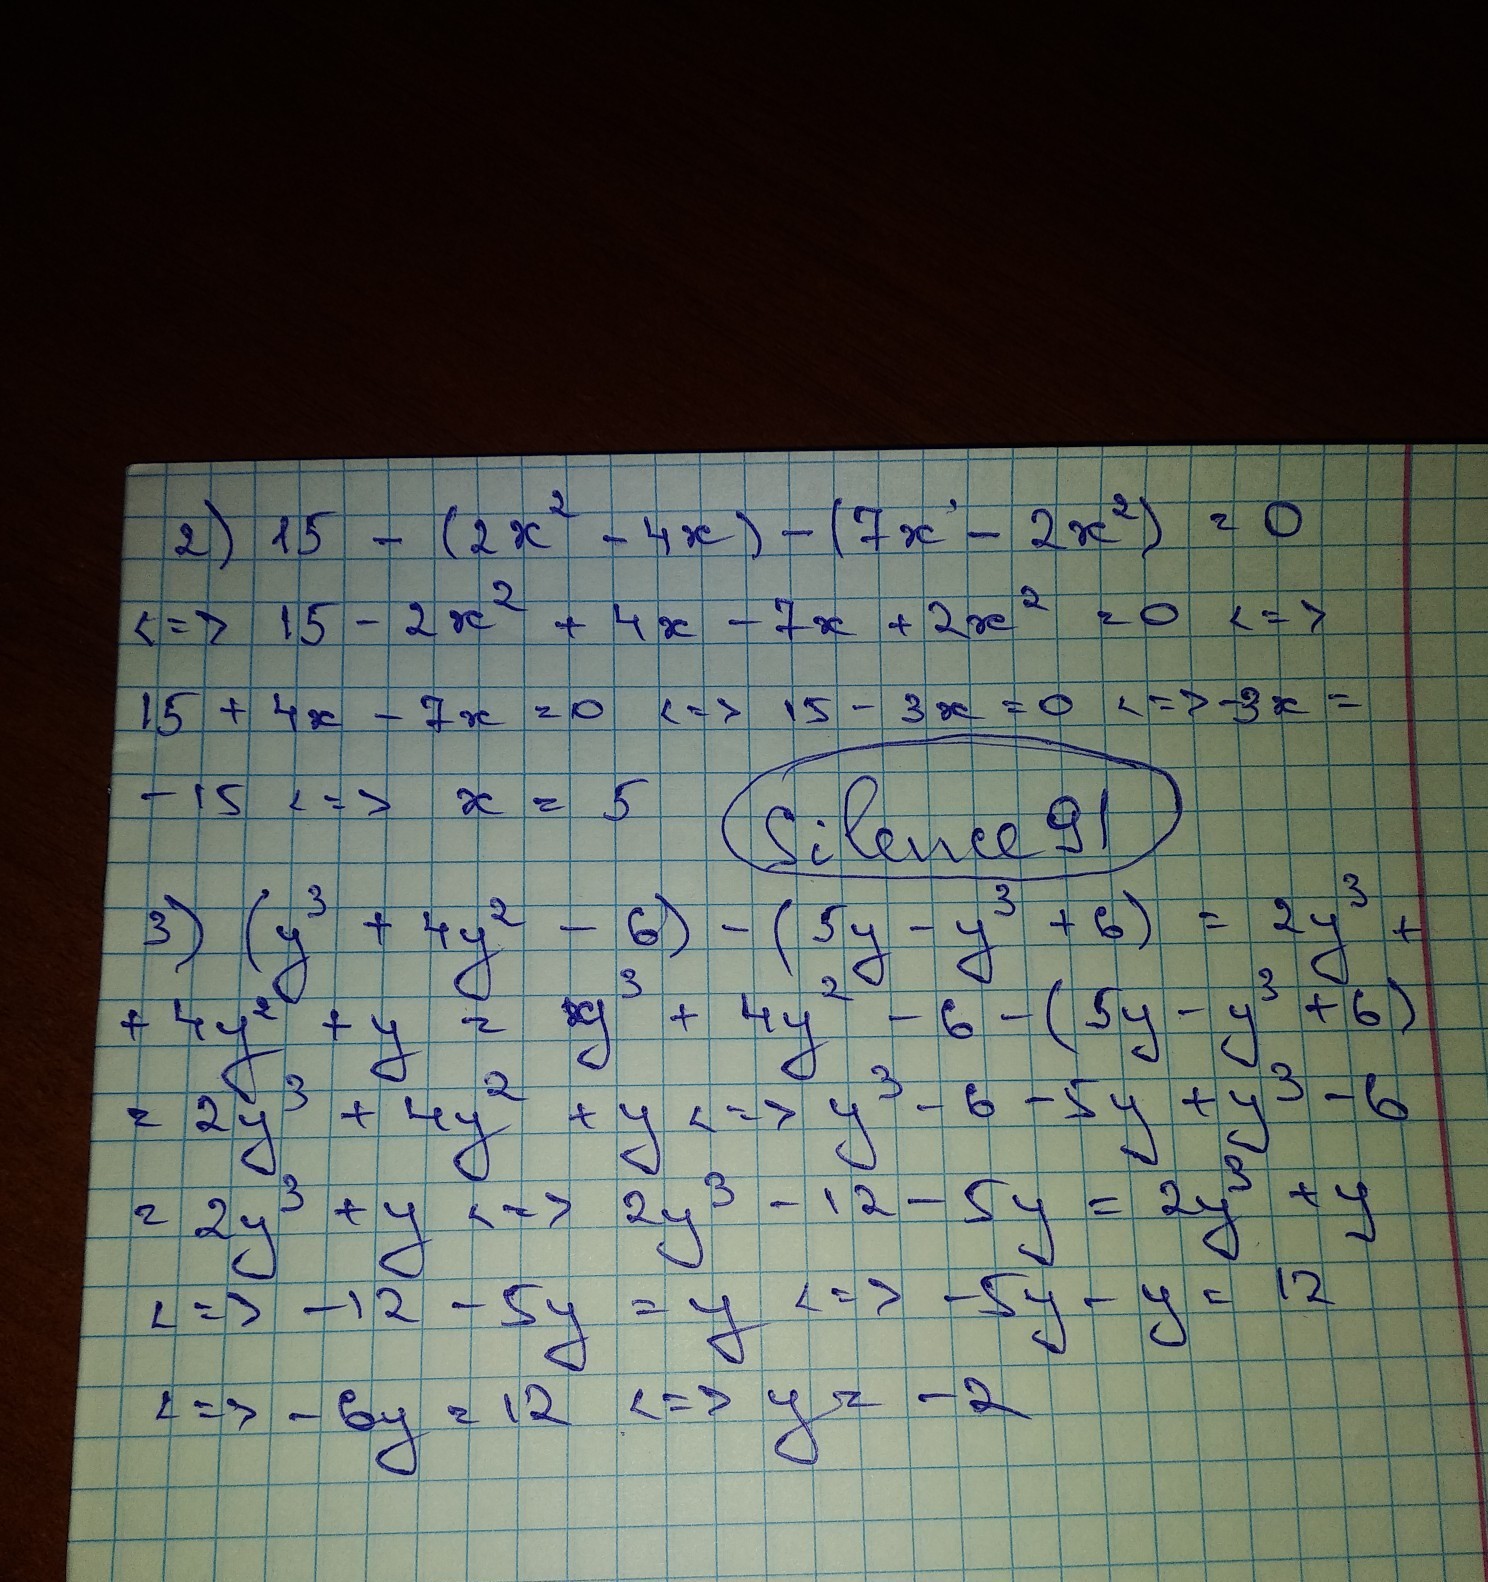 2) 15 - (2x² - 4x) - (7x - 2x²) = 0
<=> 15 - 2x² + 4x - 7x + 2x² = 0 <=>
15 + 4x - 7x = 0 <=> 15 - 3x = 0 <=> -3x =
-15 <=> x = 5 Silence91
3) (y³ + 4y² - 6) - (5y - y³ + 6) = 2y³ +
+ 4y² + y = y³ + 4y² - 6 - (5y - y³ + 6)
= 2y³ + 4y² + y <=> y³ - 6 - 5y + y³ - 6
= 2y³ + y <=> 2y³ - 12 - 5y = 2y³ + y
<=> -12 - 5y = y <=> -5y - y = 12
<=> -6y = 12 <=> y = -2